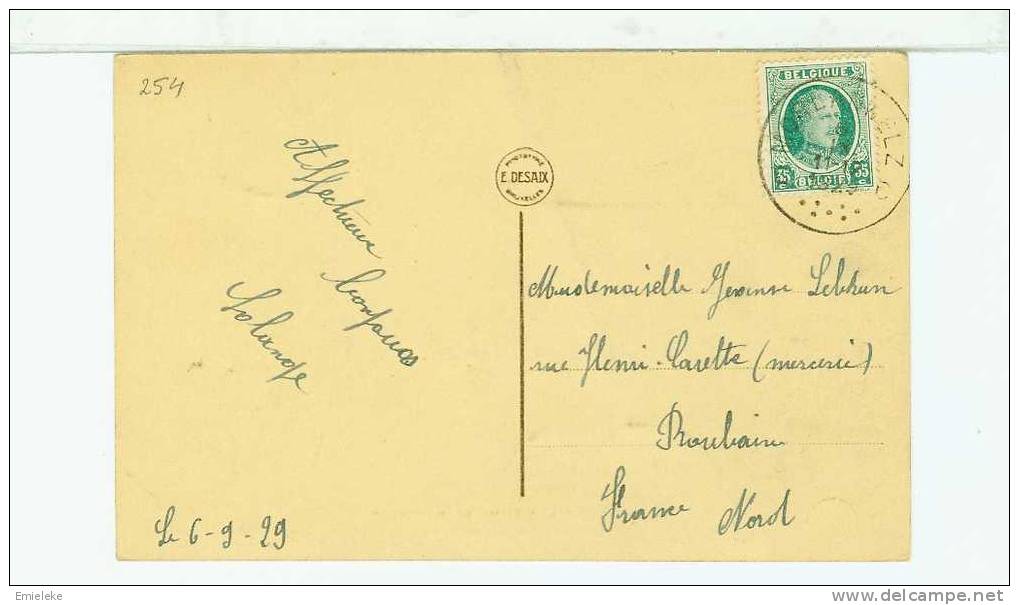 254
Affectueux bonjours
Solange
Le 6-9-29
PHOTOTYPIE
E. DESAIX
BRUXELLES
BELGIQUE
35 BELGIË 35
Mademoiselle Jeanne Lebrun
rue Henri-Carette (mercerie)
Roubaix
France Nord
Emieleke
www.delcampe.net